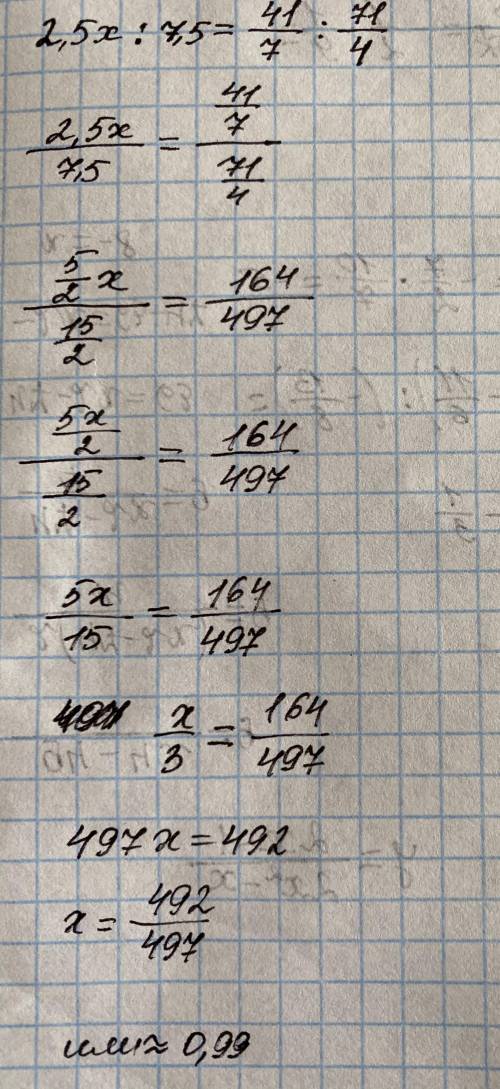 2,5x : 7,5 = 41/7 : 71/4
2,5x/7,5 = (41/7)/(71/4)
(5/2 x)/(15/2) = 164/497
(5x/2)/(15/2) = 164/497
5x/15 = 164/497
x/3 = 164/497
497x = 492
x = 492/497
или ≈ 0,99